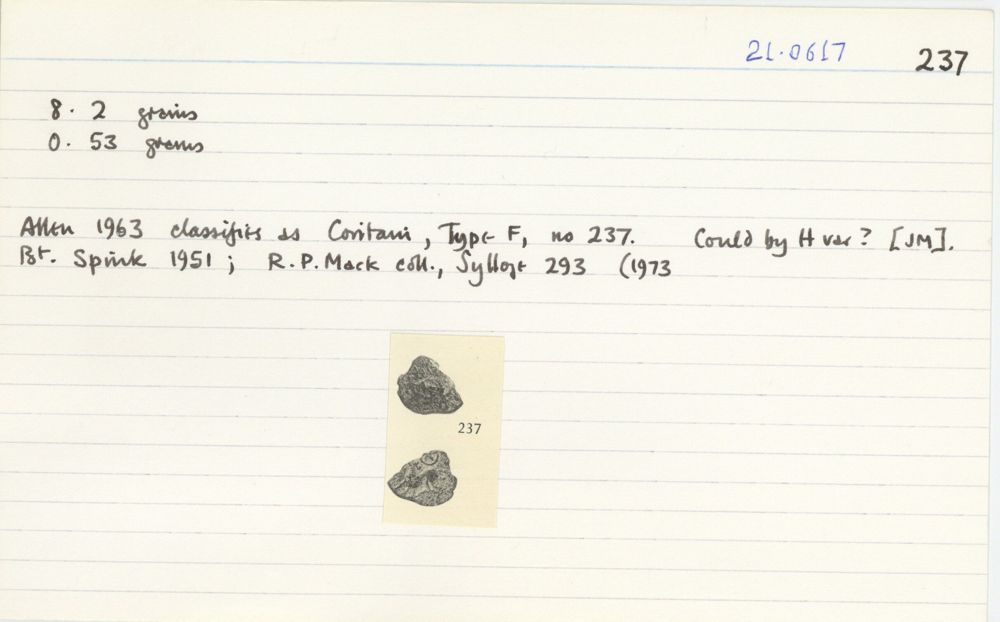 21.0617 237
8.2 grains
0.53 grams
Allen 1963 classifies as Coritani, Type F, no 237. Could by H var? [JM].
Bt. Spink 1951; R.P. Mack coll., Sylloge 293 (1973
237